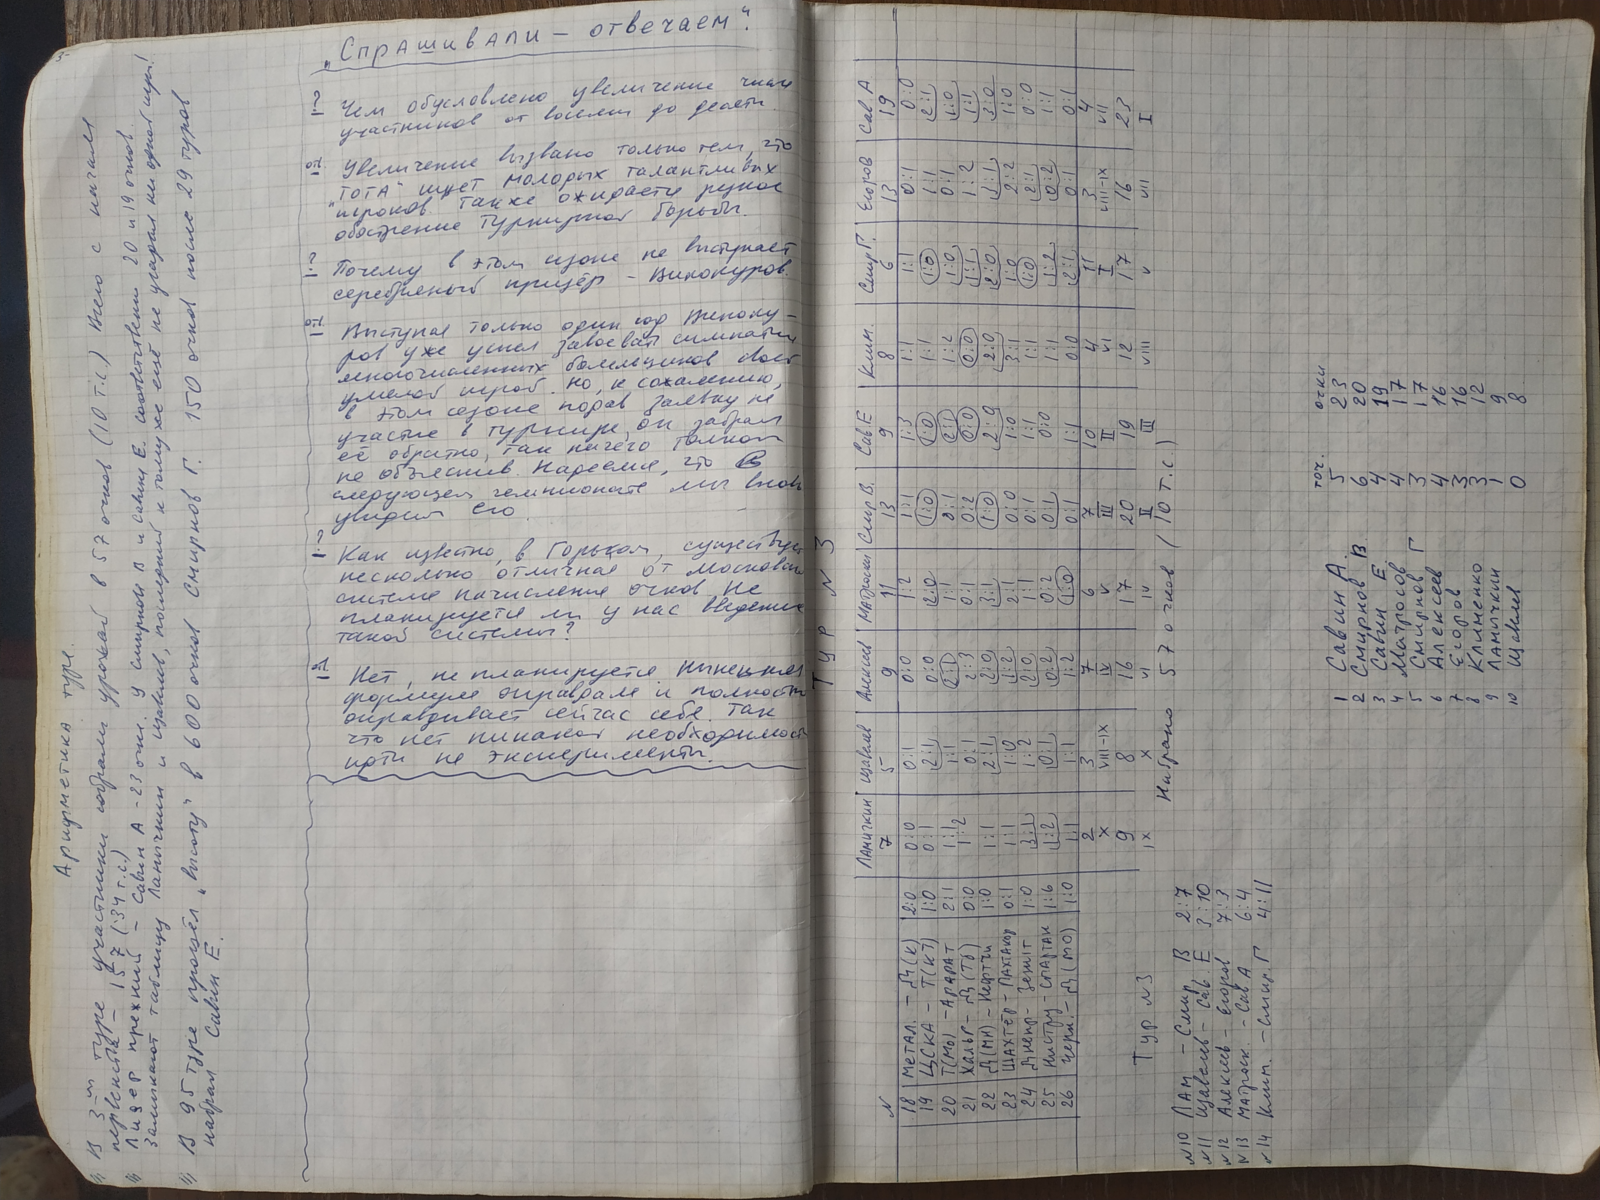 Арифметика тура.
1) В 3-м туре участники собрали урожай в 57 очков (10 т.с.) Всего с начала
первенства – 157 (34 т.с.)
Лидер прежний – Савин А – 23 очка. У Смирнов В и Савин Е. соответственно 20 и 19 очков.
Замыкают таблицу Ланычкин и Щавелев, последний к тому же ещё не угадал ни одной игры!
1) В 95 туре прошёл „высоту" в 600 очков Смирнов Г. 150 очков после 29 туров
набрал Савин Е.
„Спрашивали – отвечаем".
Чем обусловлено увеличение числа
участников от восьми до десяти
Увеличение вызвано только тем, что
„ТОТА" ищет молодых талантливых
игроков. Также ожидается резкое
обострение турнирной борьбы.
Почему в этом сезоне не выступает
серебряный призёр – Винокуров.
Выступая только один год Виноку-
ров уже успел завоевать симпатии
многочисленных болельщиков своей
умелой игрой. Но, к сожалению,
в этом сезоне подав заявку на
участие в турнире, он забрал
её обратно, так ничего толком
не объяснив. Надеемся, что в
следующем чемпионате мы вновь
увидим его.
Как известно, в Горьком, существует
несколько отличная от московской
система начисления очков. Не
планируется ли у нас введение
такой системы?
Нет, не планируется. Нынешняя
формула оправдала и полностью
оправдывает сейчас себя. Так
что нет никакой необходимости
идти на эксперименты.
ТУР N 3
N Ланычкин Щавелев Алексеев Матросов Смир В. Сав Е Клим. Смир Г. Егоров Сав А
7 5 9 11 13 9 8 6 13 19
18 Метал. – Д(К) 2:0 0:0 0:1 0:0 1:2 1:1 1:3 1:1 1:1 0:1 0:0
19 ЦСКА – Т(КТ) 1:0 0:1 2:1 0:0 2:0 1:0 1:0 1:1 1:0 1:1 2:1
20 Т(Мо) – Арарат 2:1 1:1 1:1 2:1 1:1 0:1 2:1 1:2 1:0 0:1 1:0
21 Хальр – Д(Тб) 0:0 1:2 0:2 2:3 0:1 0:2 0:0 0:0 1:1 1:2 1:1
22 Д(Мн) – Нефтчи 1:0 1:1 2:1 2:0 3:1 1:0 2:0 2:0 2:0 2:1 3:0
23 Шахтёр – Пахтакор 0:1 1:1 1:0 1:2 2:1 0:0 1:0 3:1 1:0 2:2 1:0
24 Днепр – Зенит 1:0 3:1 1:2 2:0 1:1 0:1 1:1 1:1 1:0 2:1 0:0
25 Нистру – Спартак 1:6 1:2 0:1 0:2 0:2 0:1 0:0 1:1 1:2 0:2 1:1
26 Черн. – Д(МО) 1:0 1:1 1:1 1:2 1:0 0:1 1:1 0:0 2:1 0:1 0:1
2 3 7 6 7 10 4 11 3 4
X VIII–IX IV V III II VI I VIII–IX VII
9 8 16 17 20 19 12 17 16 23
IX X VI IV II III VIII V VII I
Набрано 57 очков (10 т.с)
Тур N3
N10 Лам – Смир В 2:7
N11 Щавелев – Сав. Е 3:10
N12 Алексеев – Егоров 7:3
N13 Матросов – Сав А 6:4
N14 Клим. – Смир. Г 4:11
точ. очки
1 Савин А 5 23
2 Смирнов В 6 20
3 Савин Е 4 19
4 Матросов 4 17
5 Смирнов Г 3 17
6 Алексеев 4 16
7 Егоров 3 16
8 Клименко 3 12
9 Ланычкин 1 9
10 Щавелев 0 8